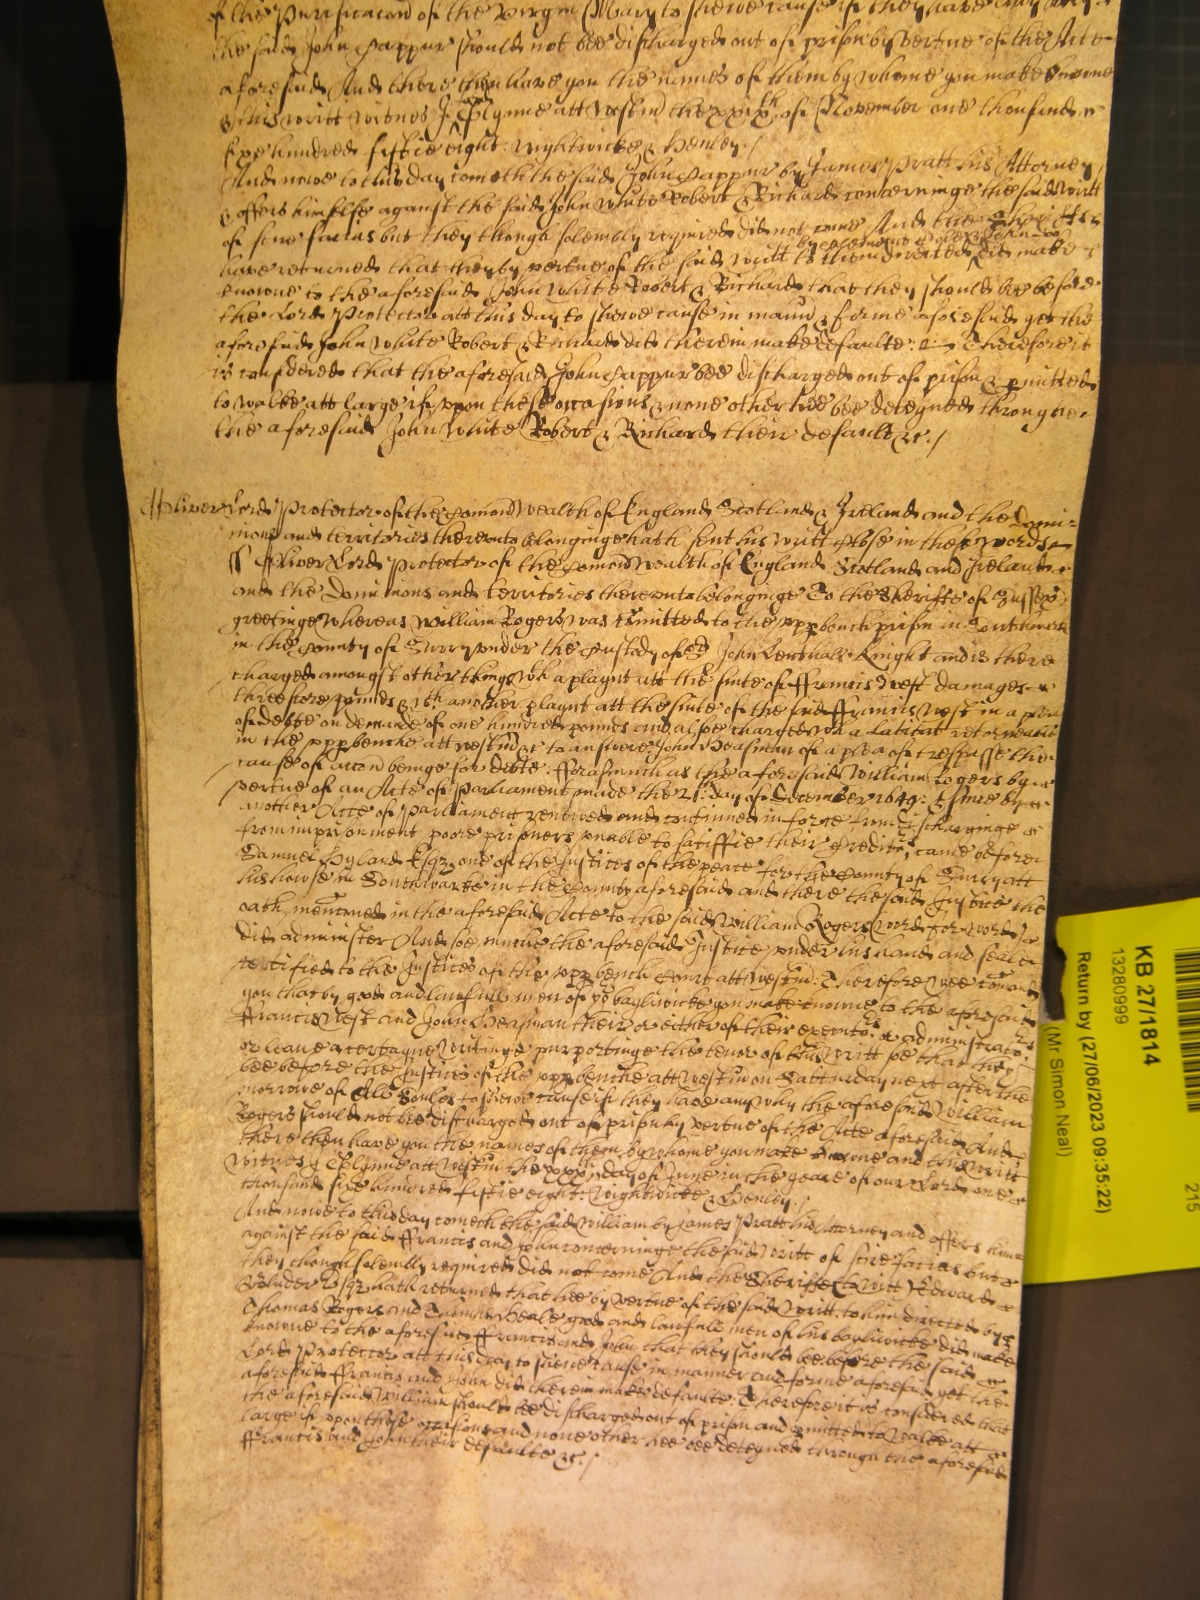 of the Purificacon of the Virgin Mary to shewe cause if they have any why
the said John Sappur should not bee discharged out of prison by vertue of the Acte
aforesaid And there then have you the names of them by whome you make knowne
& this writt Witnes J Glynne att Westm the xxixth of November one thousand
six hundred fiftie eight: Wightwicke & Henley./
And nowe to this day cometh the said John Sappur by James Pratt his Attorney
& offers himselfe against the said John White Robert & Richard concerninge the said Writt
of scire facias but they though solembly required did not come And the
have returned that they by vertue of the said writt to them directed did make
knowne to the aforesaid John White Robert & Richard that they should bee before
the Lord Protector att this day to shewe cause in mann & forme aforesaid yet the
aforesaid John White Robert & Richard did therein make defaulte: Therefore it
is considered that the aforesaid John Sappur bee discharged out of prison & pmitted
to walke att large if upon these occasions & none other hee bee deteyned through
the aforesaid John White Robert & Richard their default &c./
Oliver Lord Protector of the Comonwealth of England Scotland & Ireland and the Domi-
nions and territories thereunto belonginge hath sent his writt close in these words
ss Oliver Lord Protector of the Comonwealth of England Scotland and Ireland
and the Dominions and territories thereunto belonginge To the Sheriffe of Sussex
greetinge Whereas William Rogers was comitted to the uppbench prison in Southwark
in the County of Surry under the Custody of Sr John Lenthall Knight and is there
charged amongst other things wth a playnt att the suite of Francis West damages
threescore pounds & wth another playnt att the suite of the said Francis West in a plea
of debte on demande of one hundred pounds and alsoe charged wth a Latitat retornable
in the uppbenche att Westm &c to answere John Heasman of a plea of trespasse the
cause of accon beinge for debte: fforasmuch as the aforesaid William Rogers by
vertue of an Acte of Parliament made the 21th day of December 1649: & since by
another Acte of Parliament renewed and continued in force for discharginge
from imprisonment poore prisoners unable to satisfie their Creditors came before
Samuel Hyland Esqr one of the Justices of the peace for the County of Surry att
his howse in Southwarke in the County aforesaid and there the said Justice the
oath menconed in the aforesaid Acte to the said William Rogers word for word
did administer And soe much the aforesaid Justice under his hand and seale
certified to the Justices of the uppbench Court att Westm: Therefore wee comand
you that by good and lawfull men of yor bayliwicke you make knowne to the aforesaid
Francis West and John Heasman their or either of their executors or administrators
or leave a certayne writinge purportinge the tenor of this writt soe that they
bee before the Justices of the uppbenche att Westm on Satturday next after the
morrowe of All Soules to shewe cause if they have any why the aforesaid William
Rogers should not be discharged out of prison by vertue of the Acte aforesaid And
there then have you the names of them by whome you make knowne and this writt
Witnes J Glynne att Westm the xxxth day of June in the yeare of our Lord one
thousand six hundred fiftie eight: Wightwicke & Henley./
And nowe to this day cometh the said William by James Pratt his Attorney and offers him
against the said Francis and John concerninge the said writt of scire facias but
they though solembly required did not come And the Sheriffe to witt Edward
Esqr hath returned that hee by vertue of the said writt to him directed by
Thomas Rogers and Heale good and lawfull men of his bayliwicke did make
knowne to the aforesaid Francis and John that they should bee before the said
Lord Protector att this day to shewe cause in manner and forme aforesaid yet the
aforesaid Francis and John did therein make defaulte: Therefore it is considered that
the aforesaid William should bee discharged out of prison and pmitted to walke att
large if upon these occasions and none other hee bee deteyned through the aforesaid
Francis and John their defaulte &c./
KB 27/1814
13280999
Return by (27/06/2023 09:35:22)
(Mr Simon Neal)
215